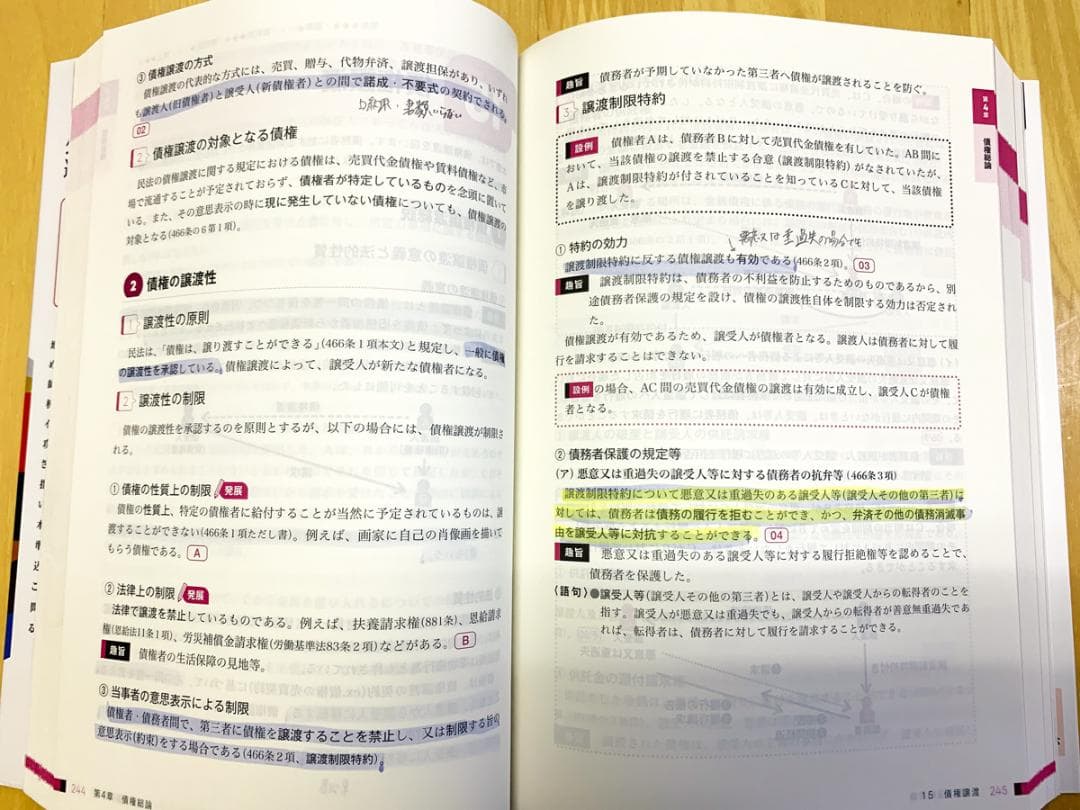 ③ 債権譲渡の方式
債権譲渡の代表的な方式には、売買、贈与、代物弁済、譲渡担保があり、いずれ
も譲渡人(旧債権者)と譲受人(新債権者)との間で諾成・不要式の契約でされる。
02
2 債権譲渡の対象となる債権
民法の債権譲渡に関する規定における債権は、売買代金債権や賃料債権など、市
場で流通することが予定されておらず、債権者が特定しているものを念頭に置いて
いる。また、その意思表示の時に現に発生していない債権についても、債権譲渡の
対象となる(466条の6第1項)。
2 債権の譲渡性
1 譲渡性の原則
民法は、「債権は、譲り渡すことができる」(466条1項本文)と規定し、一般に債権
の譲渡性を承認している。債権譲渡によって、譲受人が新たな債権者になる。
2 譲渡性の制限
債権の譲渡性を承認するのを原則とするが、以下の場合には、債権譲渡が制限さ
れる。
① 債権の性質上の制限 発展
債権の性質上、特定の債権者に給付することが当然に予定されているものは、譲
渡することができない(466条1項ただし書)。例えば、画家に自己の肖像画を描いて
もらう債権である。 A
② 法律上の制限 発展
法律で譲渡を禁止しているものである。例えば、扶養請求権(881条)、恩給請求
権(恩給法11条1項)、労災補償金請求権(労働基準法83条2項)などがある。 B
趣旨 債権者の生活保障の見地等。
③ 当事者の意思表示による制限
債権者・債務者間で、第三者に債権を譲渡することを禁止し、又は制限する旨の
意思表示(約束)をする場合である(466条2項、譲渡制限特約)。
244 第4章 債権総論
趣旨 債務者が予期していなかった第三者へ債権が譲渡されることを防ぐ。
3 譲渡制限特約
設例 債権者Aは、債務者Bに対して売買代金債権を有していた。AB間に
おいて、当該債権の譲渡を禁止する合意(譲渡制限特約)がなされていたが、
Aは、譲渡制限特約が付されていることを知っているCに対して、当該債権
を譲り渡した。
① 特約の効力
譲渡制限特約に反する債権譲渡も有効である(466条2項)。 03
趣旨 譲渡制限特約は、債務者の不利益を防止するためのものであるから、別
途債務者保護の規定を設け、債権の譲渡性自体を制限する効力は否定され
た。
債権譲渡が有効であるため、譲受人が債権者となる。譲渡人は債務者に対して履
行を請求することはできない。
設例 の場合、AC間の売買代金債権の譲渡は有効に成立し、譲受人Cが債権
者となる。
② 債務者保護の規定等
(ア) 悪意又は重過失の譲受人等に対する債務者の抗弁等(466条3項)
譲渡制限特約について悪意又は重過失のある譲受人等(譲受人その他の第三者)に
対しては、債務者は債務の履行を拒むことができ、かつ、弁済その他の債務消滅事
由を譲受人等に対抗することができる。 04
趣旨 悪意又は重過失のある譲受人等に対する履行拒絶権等を認めることで、
債務者を保護した。
〈語句〉●譲受人等(譲受人その他の第三者)とは、譲受人や譲受人からの転得者のことを
指す。譲受人が悪意又は重過失でも、譲受人からの転得者が善意無重過失であ
れば、転得者は、債務者に対して履行を請求することができる。
第4章
債権総論
15 債権譲渡 245